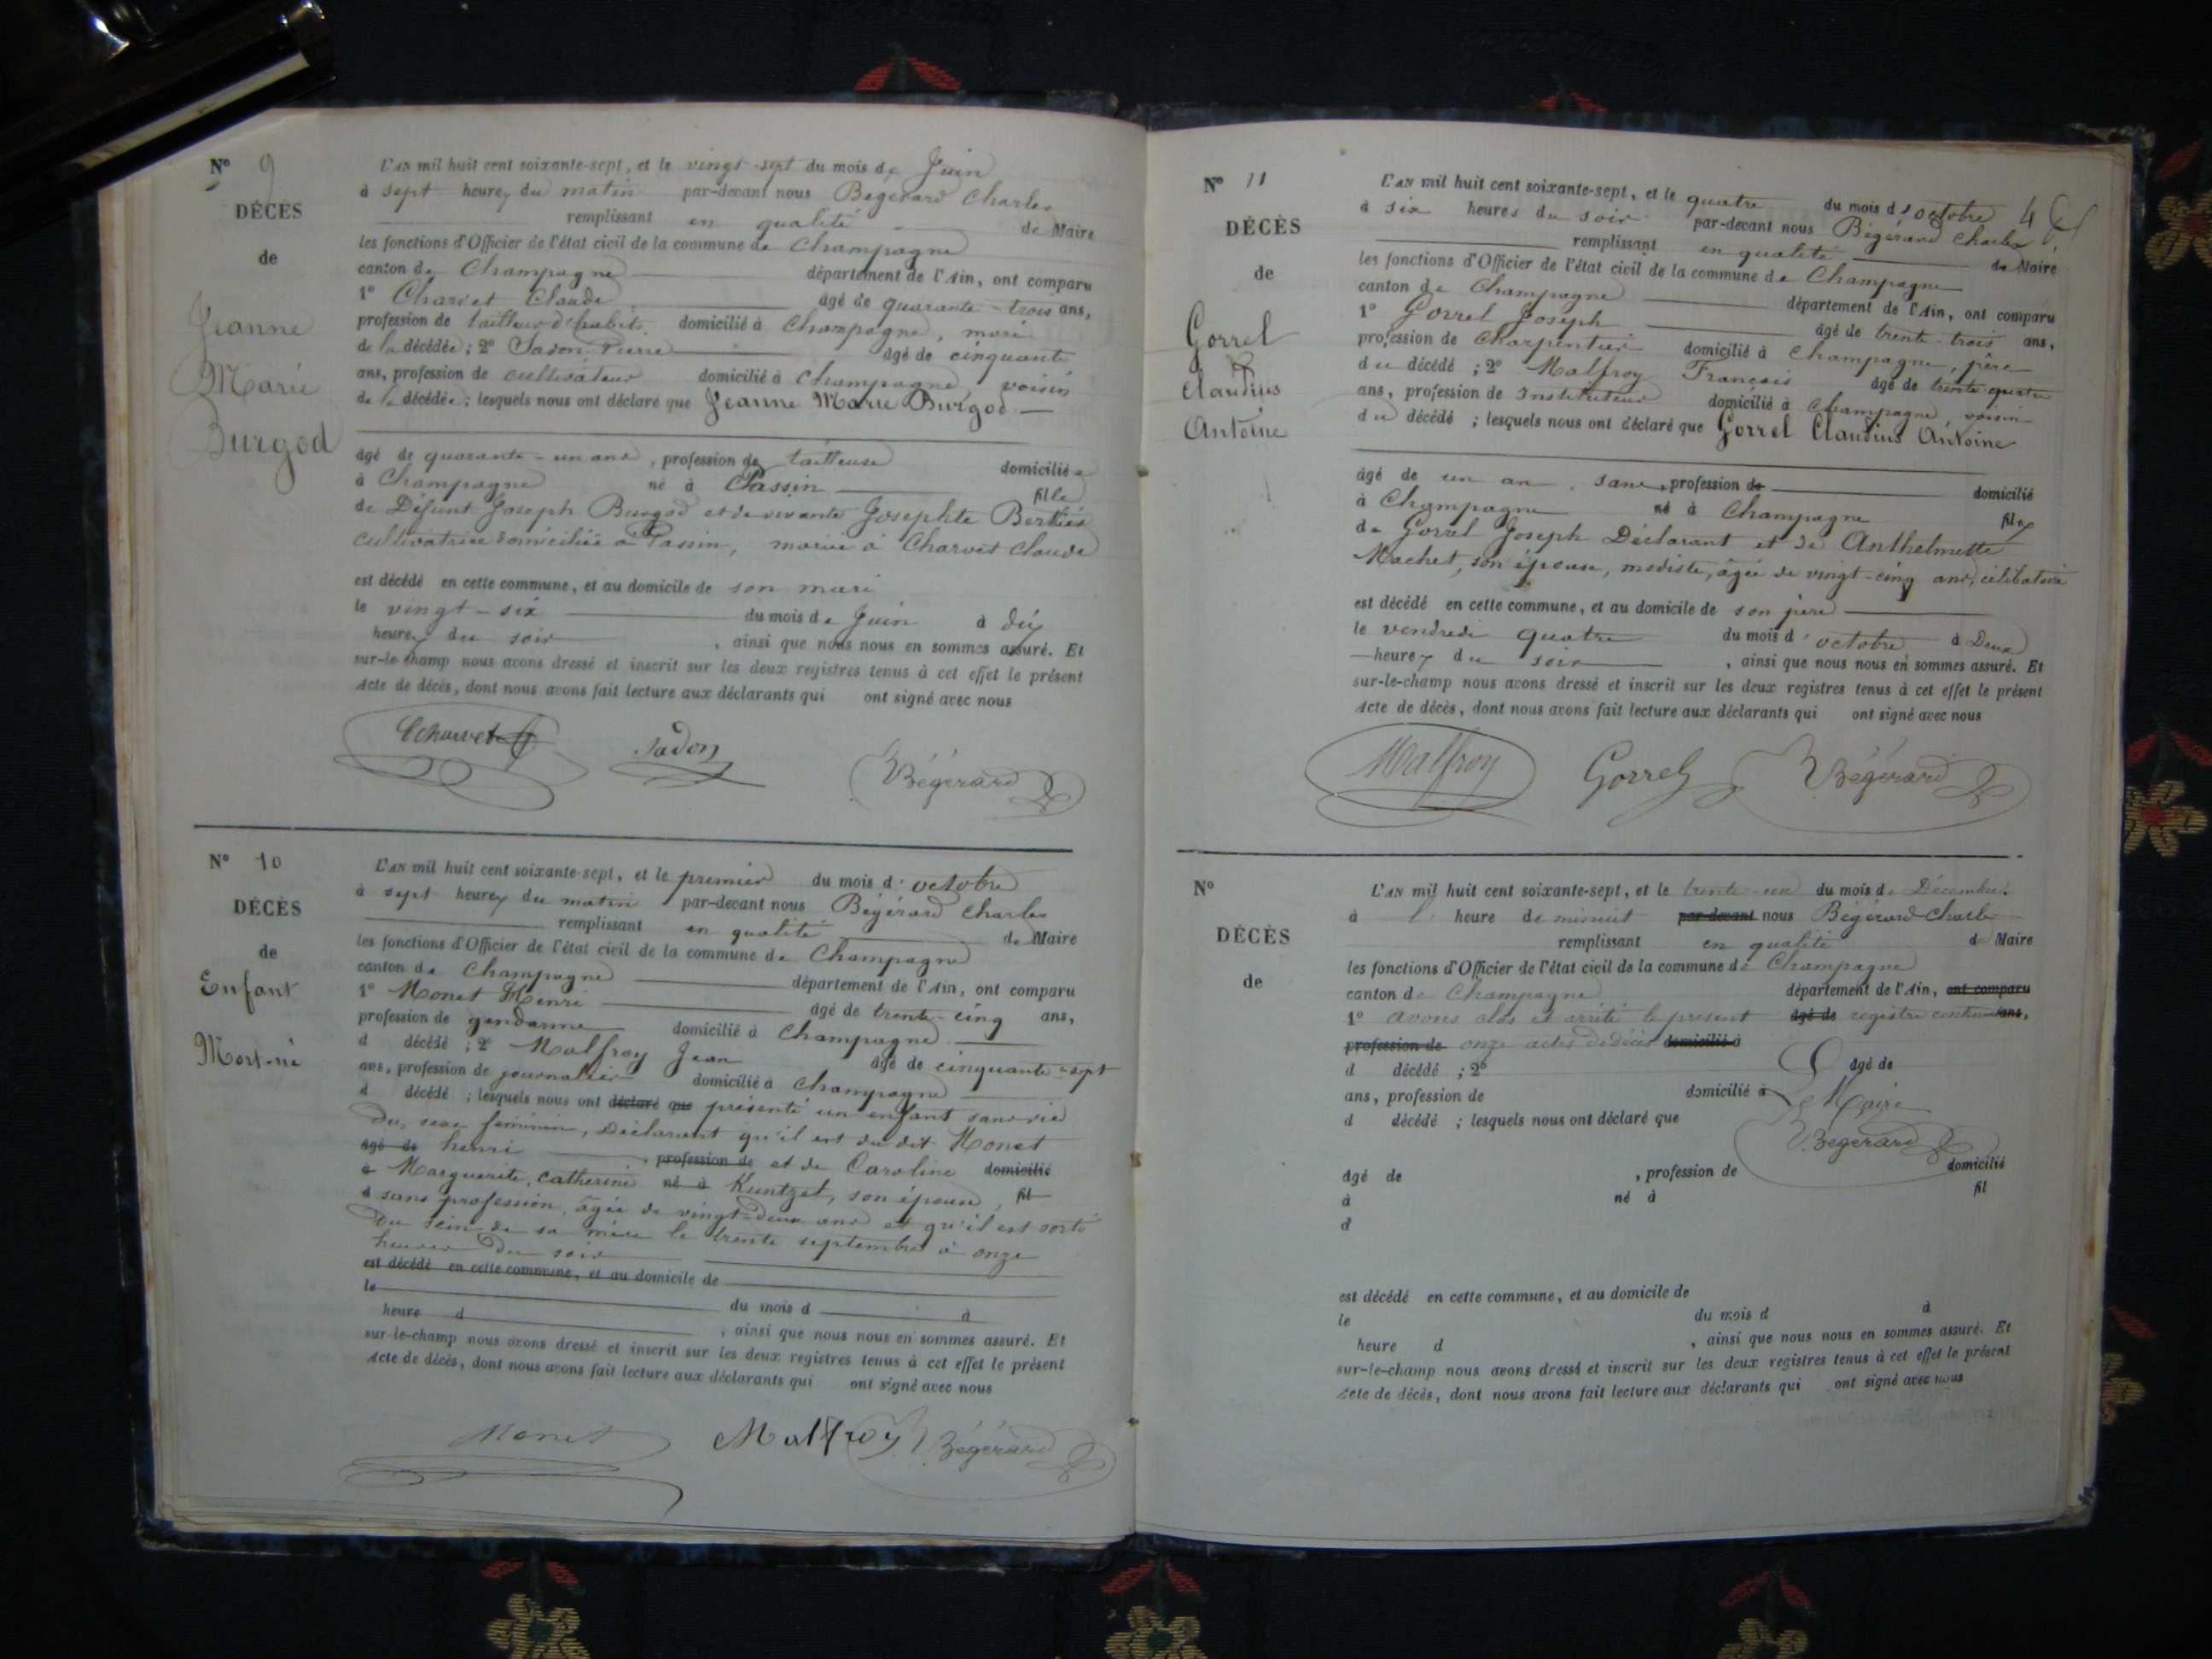 N° 9
DÉCÈS
de
Jeanne
Marie
Burgod
L'AN mil huit cent soixante-sept, et le vingt-sept du mois de Juin
à sept heures du matin par-devant nous Bégérard Charles
remplissant en qualité de Maire
les fonctions d'Officier de l'état civil de la commune de Champagne
canton de Champagne département de l'Ain, ont comparu
1° Charvet Claude âgé de quarante-trois ans,
profession de tailleur d'habits domicilié à Champagne, mari
de la décédée ; 2° Sadon Pierre âgé de cinquante
ans, profession de cultivateur domicilié à Champagne voisin
de la décédée ; lesquels nous ont déclaré que Jeanne Marie Burgod
âgé de quarante-un ans, profession de tailleuse domiciliée
à Champagne né à Passin fille
de Défunt Joseph Burgod et de vivante Josephte
cultivatrice domiciliée à Passin, mariée à Charvet Claude
est décédé en cette commune, et au domicile de son mari
le vingt-six du mois de Juin à dix
heures du soir, ainsi que nous nous en sommes assuré. Et
sur-le-champ nous avons dressé et inscrit sur les deux registres tenus à cet effet le présent
Acte de décès, dont nous avons fait lecture aux déclarants qui ont signé avec nous
Charvet Sadon Bégérard
N° 10
DÉCÈS
de
Enfant
Mort-né
L'AN mil huit cent soixante-sept, et le premier du mois d'octobre
à sept heures du matin par-devant nous Bégérard Charles
remplissant en qualité de Maire
les fonctions d'Officier de l'état civil de la commune de Champagne
canton de Champagne département de l'Ain, ont comparu
1° Monet Henri âgé de trente-cinq ans,
profession de gendarme domicilié à Champagne
d décédé ; 2° Malfroy Jean âgé de cinquante-sept
ans, profession de journalier domicilié à Champagne
d décédé ; lesquels nous ont déclaré que présenté un enfant sans vie
du sexe féminin, Déclarant qu'il est du dit Monet
âgé de henri, profession de et de Caroline domicilié
à Marguerite, Catherine né à Kuntzel, son épouse, fil
d sans profession, âgée de vingt-deux ans et qu'il est sorti
du sein de sa mère le trente septembre à onze
heures du soir
est décédé en cette commune, et au domicile de
le du mois d à
heure d, ainsi que nous nous en sommes assuré. Et
sur-le-champ nous avons dressé et inscrit sur les deux registres tenus à cet effet le présent
Acte de décès, dont nous avons fait lecture aux déclarants qui ont signé avec nous
Monet Malfroy Bégérard
N° 11
DÉCÈS
de
Gorrel
Claudius
Antoine
L'AN mil huit cent soixante-sept, et le quatre du mois d'octobre
à six heures du soir par-devant nous Bégérard Charles
remplissant en qualité de Maire
les fonctions d'Officier de l'état civil de la commune de Champagne
canton de Champagne département de l'Ain, ont comparu
1° Gorrel Joseph âgé de trente-trois ans,
profession de Charpentier domicilié à Champagne, père
du décédé ; 2° Malfroy François âgé de trente-quatre
ans, profession de Instituteur domicilié à Champagne, voisin
du décédé ; lesquels nous ont déclaré que Gorrel Claudius Antoine
âgé de un an, sans profession de domicilié
à Champagne né à Champagne fils
de Gorrel Joseph Déclarant et de Anthelmette
Machet, son épouse, modiste, âgée de vingt-cinq ans, célibataire
est décédé en cette commune, et au domicile de son père
le vendredi quatre du mois d'octobre à Deux
heures du soir, ainsi que nous nous en sommes assuré. Et
sur-le-champ nous avons dressé et inscrit sur les deux registres tenus à cet effet le présent
Acte de décès, dont nous avons fait lecture aux déclarants qui ont signé avec nous
Malfroy Gorrel Bégérard
N°
DÉCÈS
de
L'AN mil huit cent soixante-sept, et le trente-un du mois de Décembre
à l' heure de minuit par-devant nous Bégérard Charles
remplissant en qualité de Maire
les fonctions d'Officier de l'état civil de la commune de Champagne
canton de Champagne département de l'Ain, ont comparu
1° avons clos et arrêté le présent âgé de registre contenant ans,
profession de onze actes de décès domicilié à
d décédé ; 2° âgé de
ans, profession de domicilié à Le Maire
d décédé ; lesquels nous ont déclaré que
Bégérard
âgé de, profession de domicilié
à né à fil
d
est décédé en cette commune, et au domicile de
le du mois d à
heure d, ainsi que nous nous en sommes assuré. Et
sur-le-champ nous avons dressé et inscrit sur les deux registres tenus à cet effet le présent
Acte de décès, dont nous avons fait lecture aux déclarants qui ont signé avec nous